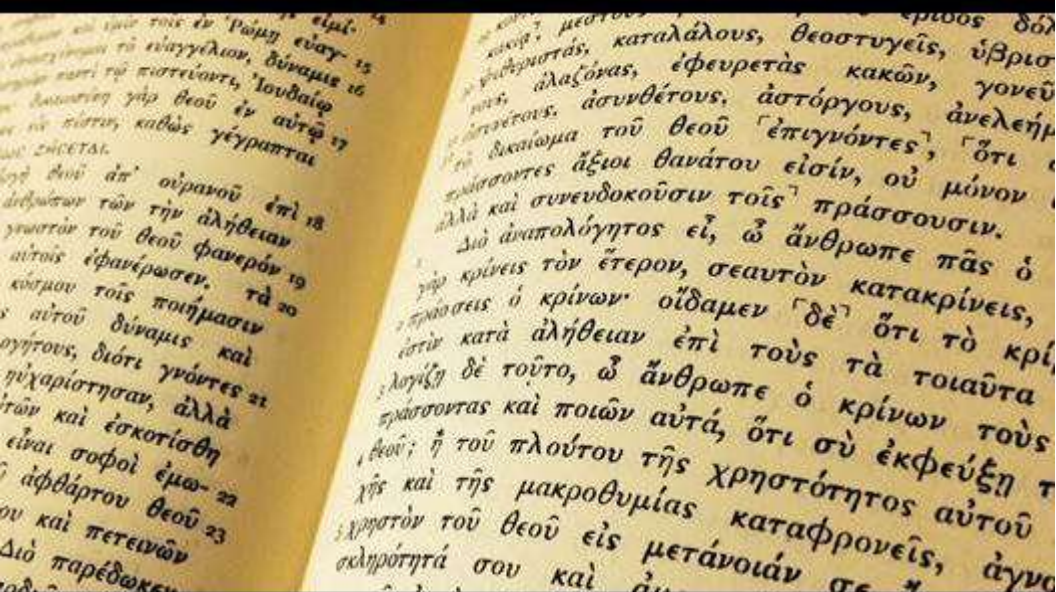 καὶ ὑμῖν τοῖς ἐν Ῥώμῃ εὐαγ- 15
τὸ εὐαγγέλιον, δύναμις 16
παντὶ τῷ πιστεύοντι, Ἰουδαίῳ
γὰρ θεοῦ ἐν αὐτῷ 17
εἰς πίστιν, καθὼς γέγραπται
ΖΗΣΕΤΑΙ.
θεοῦ ἀπ' οὐρανοῦ ἐπὶ 18
ἀνθρώπων τῶν τὴν ἀλήθειαν
γνωστὸν τοῦ θεοῦ φανερόν 19
αὐτοῖς ἐφανέρωσεν. τὰ 20
κόσμου τοῖς ποιήμασιν
αὐτοῦ δύναμις καὶ
διότι γνόντες 21
ηὐχαρίστησαν, ἀλλὰ
καὶ ἐσκοτίσθη
εἶναι σοφοὶ ἐμω- 22
ἀφθάρτου θεοῦ 23
καὶ πετεινῶν
Διὸ παρέδωκεν
ἔριδος
κακίᾳ, μεστοὺς
ψιθυριστάς, καταλάλους, θεοστυγεῖς,
ἀλαζόνας, ἐφευρετὰς κακῶν,
ἀσυνθέτους, ἀστόργους,
τὸ δικαίωμα τοῦ θεοῦ ⸢ἐπιγνόντες⸣, ⸢ὅτι
πράσσοντες ἄξιοι θανάτου εἰσίν, οὐ μόνον
ἀλλὰ καὶ συνευδοκοῦσιν τοῖς⸣ πράσσουσιν.
1 Διὸ ἀναπολόγητος εἶ, ὦ ἄνθρωπε πᾶς ὁ
γὰρ κρίνεις τὸν ἕτερον, σεαυτὸν κατακρίνεις,
2 πράσσεις ὁ κρίνων· οἴδαμεν ⸢δὲ⸣ ὅτι τὸ
ἐστὶν κατὰ ἀλήθειαν ἐπὶ τοὺς τὰ τοιαῦτα
3 λογίζῃ δὲ τοῦτο, ὦ ἄνθρωπε ὁ κρίνων τοὺς
πράσσοντας καὶ ποιῶν αὐτά, ὅτι σὺ ἐκφεύξῃ
4 θεοῦ; ἢ τοῦ πλούτου τῆς χρηστότητος αὐτοῦ
χῆς καὶ τῆς μακροθυμίας καταφρονεῖς,
5 χρηστὸν τοῦ θεοῦ εἰς μετάνοιάν σε
σκληρότητά σου καὶ